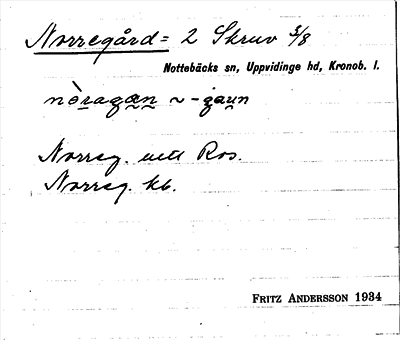 Norregård = 2 Skruv 3/8
Nottebäcks sn, Uppvidinge hd, Kronob. l.
nòragan ~ -gaun
Norreg. uttl Ros.
Norreg. kb.
FRITZ ANDERSSON 1934